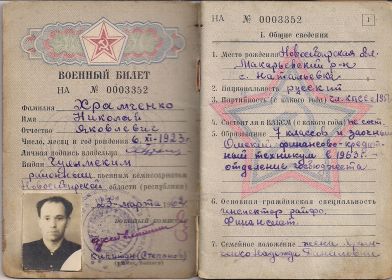 ВОЕННЫЙ БИЛЕТ
НА № 0003352
Фамилия Храмченко
Имя Николай
Отчество Яковлевич
Число, месяц и год рождения 6.XI-1923 г.
Личная подпись владельца
Выдан Чулымским
райвоенкоматом
Новосибирской области (республики)
23 марта
капитан (Степанов)
НА № 0003352
1
I. Общие сведения
1. Место рождения Новосибирская обл.
р-н
с. Натальевка
2. Национальность русский
3. Партийность (с какого года) чл. КПСС
4. Состоял ли в ВЛКСМ (с какого года) не сост.
5. Образование 7 классов и заочный
Омский финансово-кредит
ный техникум в 1963 г.
отделение госбюджета
6. Основная гражданская специальность
инспектор райфо,
финансист.
7. Семейное положение жена Храм
ченко Надежда